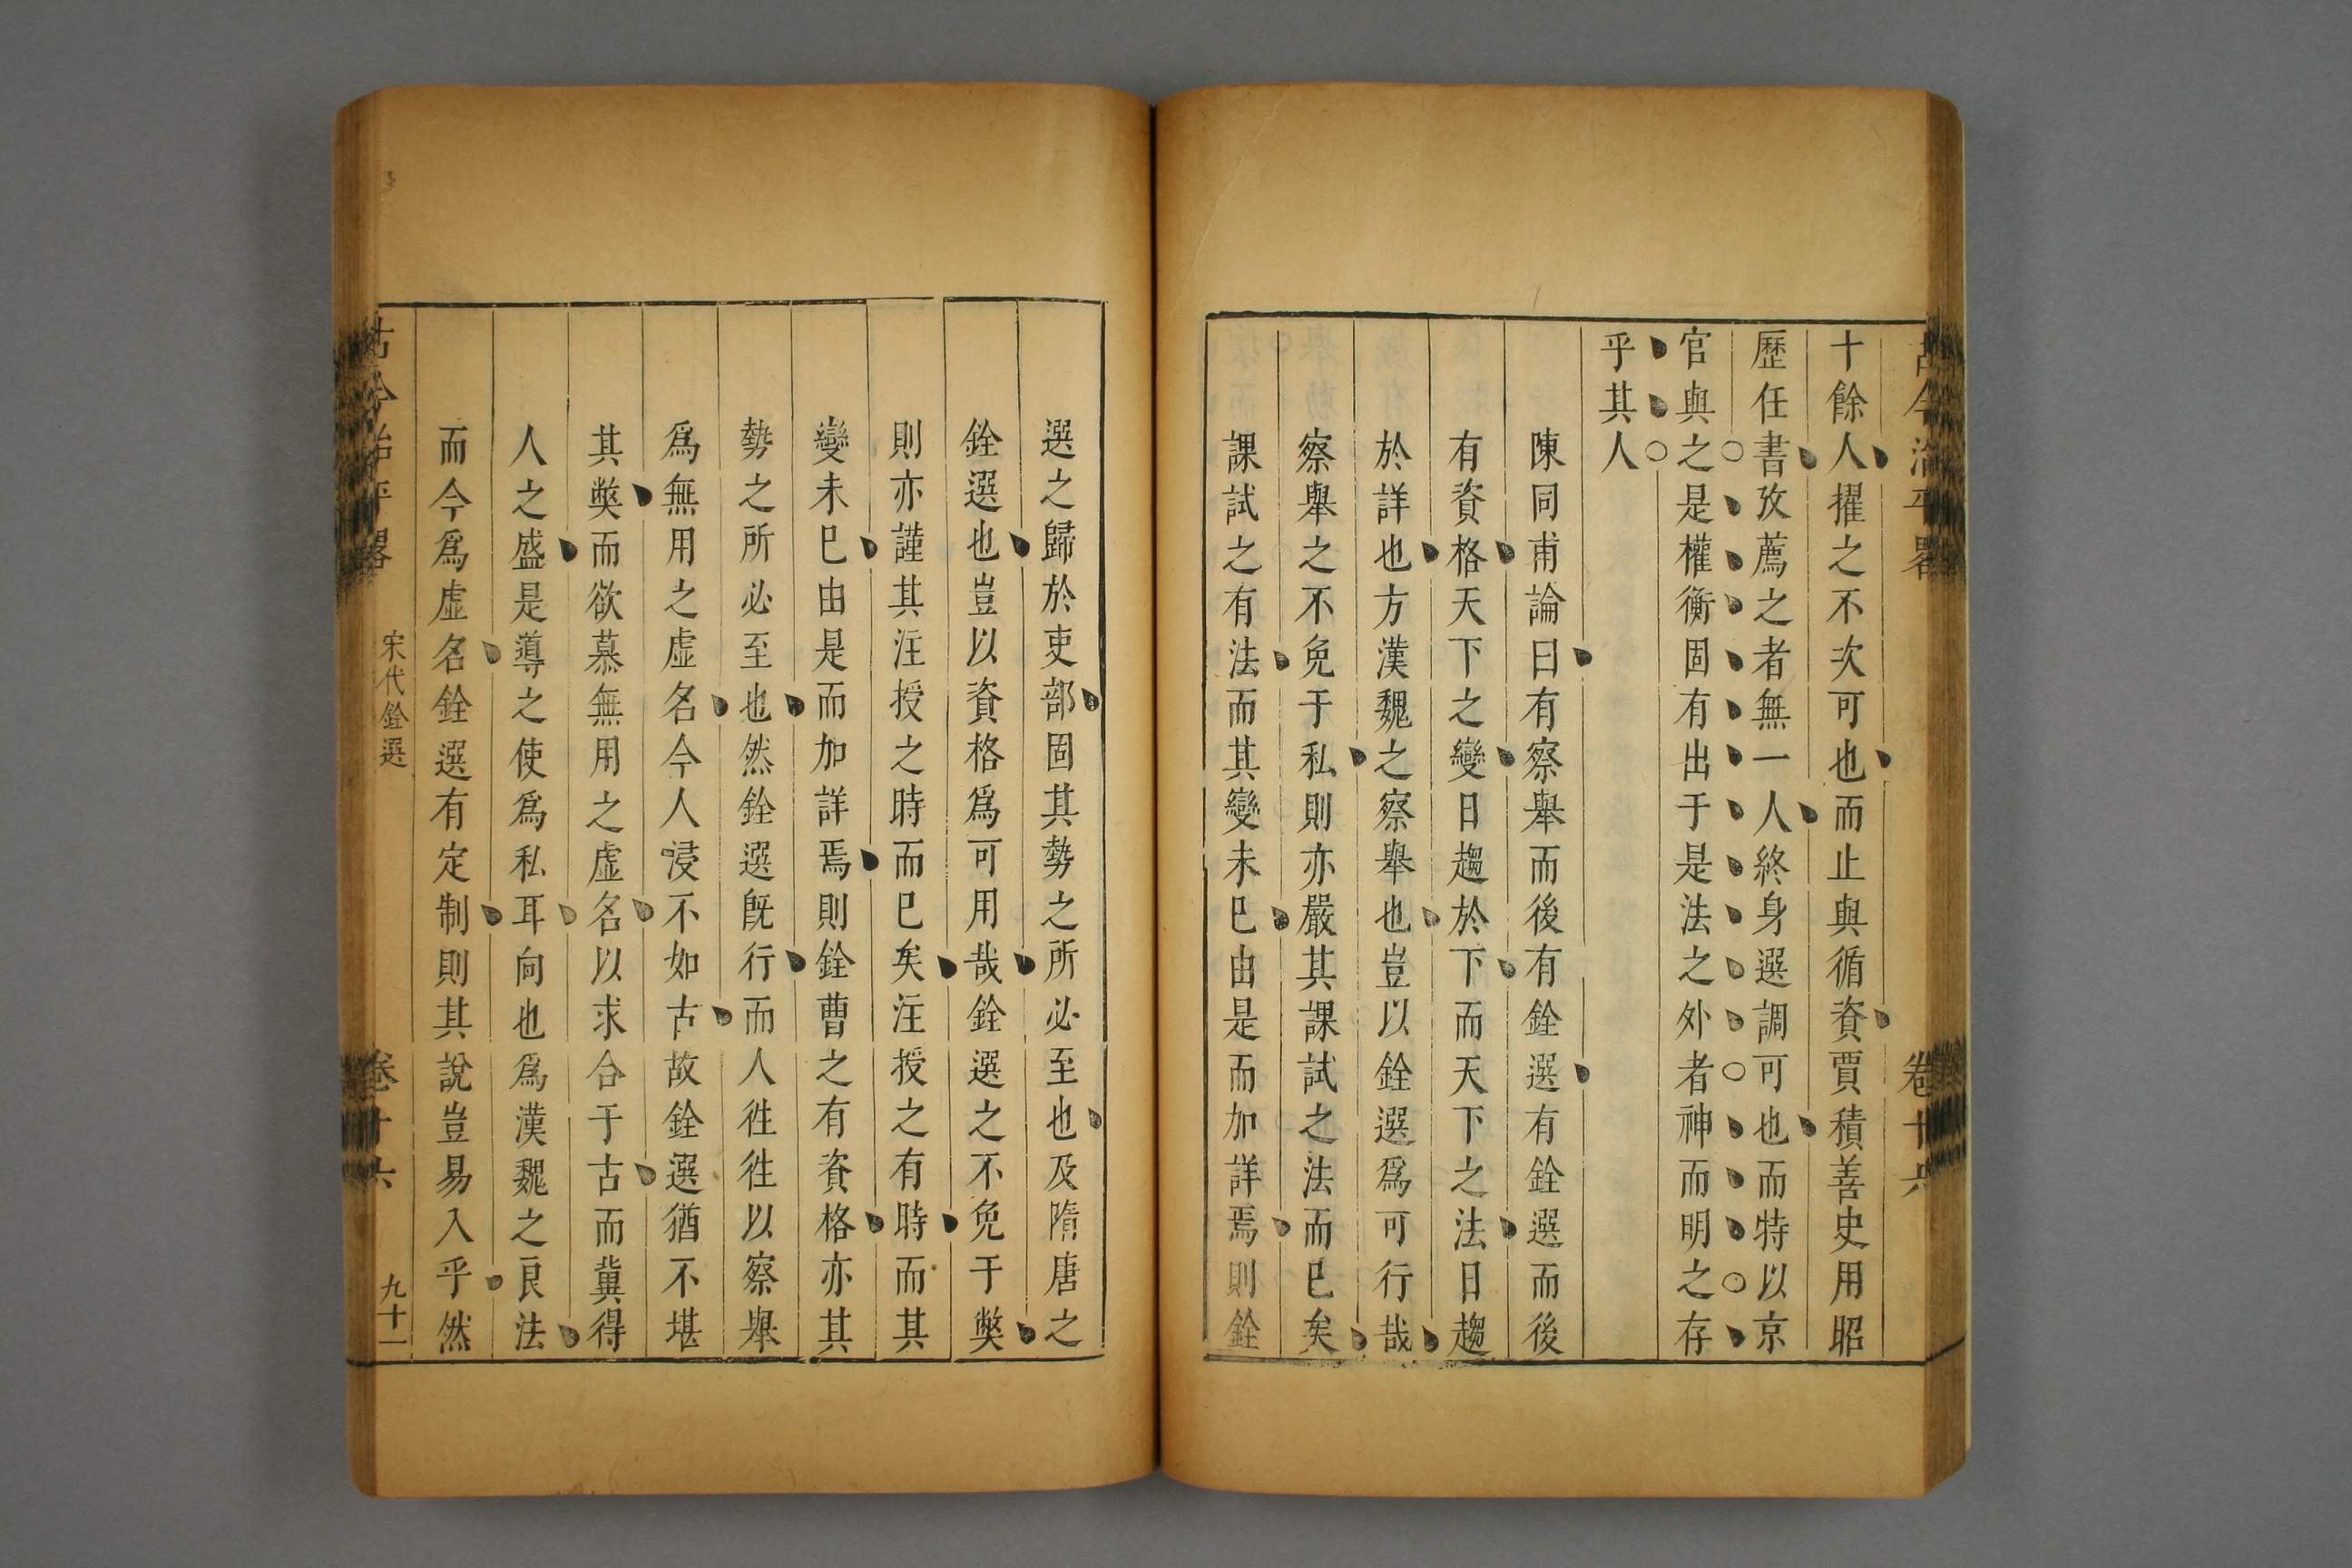 十餘人擢之不次可也而止與循資賈積善史用昭
歷任書攷薦之者無一人終身選調可也而特以京
官與之是權衡固有出于是法之外者神而明之存
乎其人
陳同甫論曰有察舉而後有銓選有銓選而後
有資格天下之變日趨於下而天下之法日趨
於詳也方漢魏之察舉也豈以銓選爲可行哉
察舉之不免于私則亦嚴其課試之法而巳矣
課試之有法而其變未巳由是而加詳焉則銓
選之歸於吏部固其勢之所必至也及隋唐之
銓選也豈以資格爲可用哉銓選之不免于獘
則亦謹其注授之時而巳矣注授之有時而其
變未巳由是而加詳焉則銓曹之有資格亦其
勢之所必至也然銓選旣行而人徃徃以察舉
爲無用之虛名今人浸不如古故銓選猶不堪
其獘而欲慕無用之虛名以求合于古而冀得
人之盛是導之使爲私耳向也爲漢魏之良法
而今爲虛名銓選有定制則其說豈易入乎然
古今治平畧
宋代銓選
卷十六
九十一